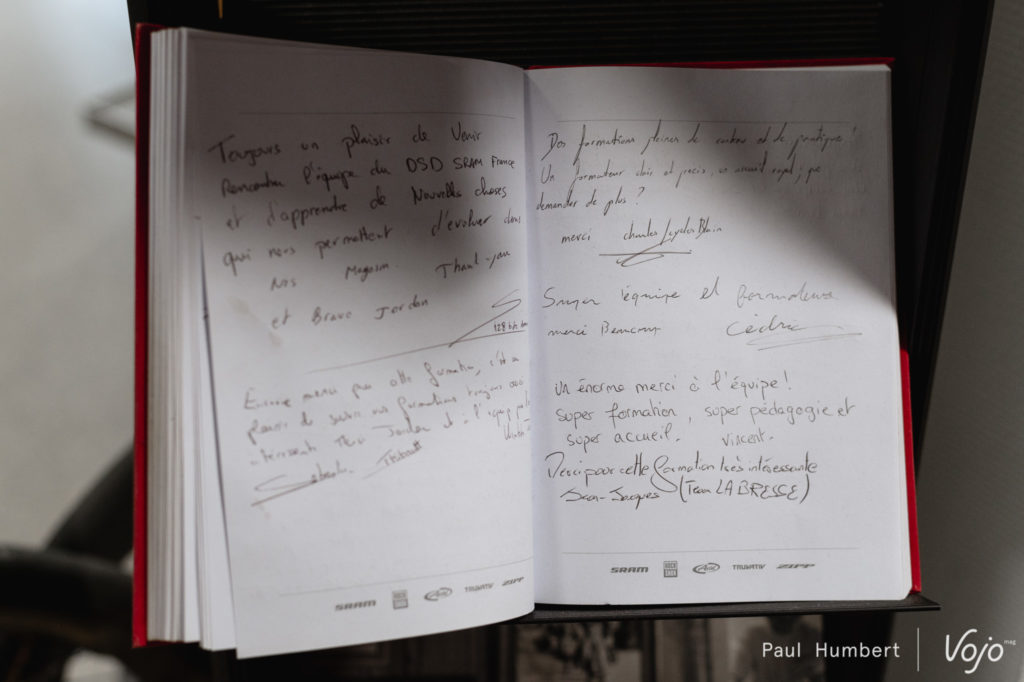 Toujours un plaisir de Venir
Rencontrer l'équipe du DSD SRAM France
et d'apprendre de Nouvelles choses
qui nous permettent d'évoluer dans
Nos Magasin. Thank-you
et Bravo Jordan
Enorme merci pour cette formation, c'est un
plaisir de suivre vos formations toujours aussi
intéressante Merci Jordan et à l'équipe
Sebastien Thibault
Des formations pleines de contenu et de pratique!
Un formateur clair et précis, un accueil royal; que
demander de plus?
merci Charles
Super équipe et formateur
merci Beaucoup Cédric
Un énorme merci à l'équipe!
super formation, super pédagogie et
super accueil. Vincent.
Merci pour cette formation très intéressante
Jean-Jacques (Team LA BRESSE)
SRAM ROCK SHOX Avid TRUVATIV ZIPP
SRAM ROCK SHOX Avid TRUVATIV ZIPP
Paul Humbert Vojo mag